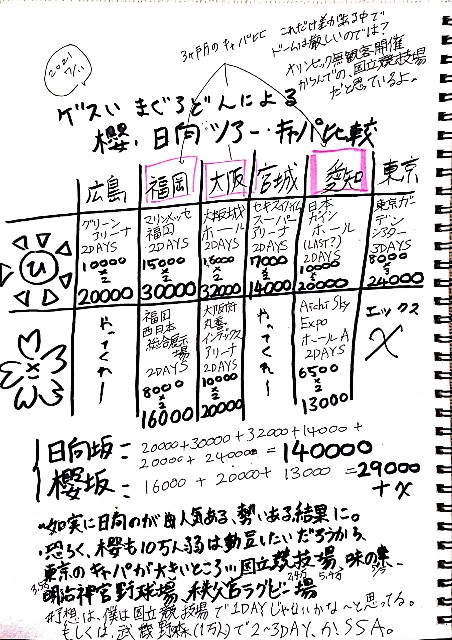 2021
7/11
3ヶ月前のキャパ比
これだけ差が出る中で
ドームは厳しいのでは?
オリンピック無観客開催
からんでの、国立競技場
だと思っているよ。
ゲスい まぐろどんによる
櫻・日向 ツアー・キャパ比較
広島 福岡 大阪 宮城 愛知 東京
グリーンアリーナ 2DAYS 10000×2 20000
マリンメッセ福岡 2DAYS 15000×2 30000
大阪城ホール 2DAYS 16000×2 32000
セキスイハイムスーパーアリーナ 2DAYS 7000×2 14000
日本ガイシホール (LAST?) 2DAYS 10000×2 20000
東京ガーデンシアター 3DAYS 8000 24000
やってくれ〜
福岡 西日本総合展示場 2DAYS 8000×2 16000
大阪府 丸善インテックアリーナ 2DAYS 10000×2 20000
やってくれ〜
Aichi Sky Expo ホールA 2DAYS 6500×2 13000
エックス X
日向坂 = 20000+30000+32000+14000+
20000+24000 = 140000
櫻坂 = 16000 + 20000 + 13000 = 29000
+ x
・如実に日向のが人気ある、勢いある結果に。
・恐らく、櫻も10万人弱は動員したいだろうから、
東京のキャパが大きいところ…国立競技場、味の素、
明治神宮野球場、秩父宮ラグビー場
予想は、僕は国立競技場で1DAYじゃないかな〜と思ってる。
もしくは、武蔵野森(1万人)で2〜3DAY.か、SSA。